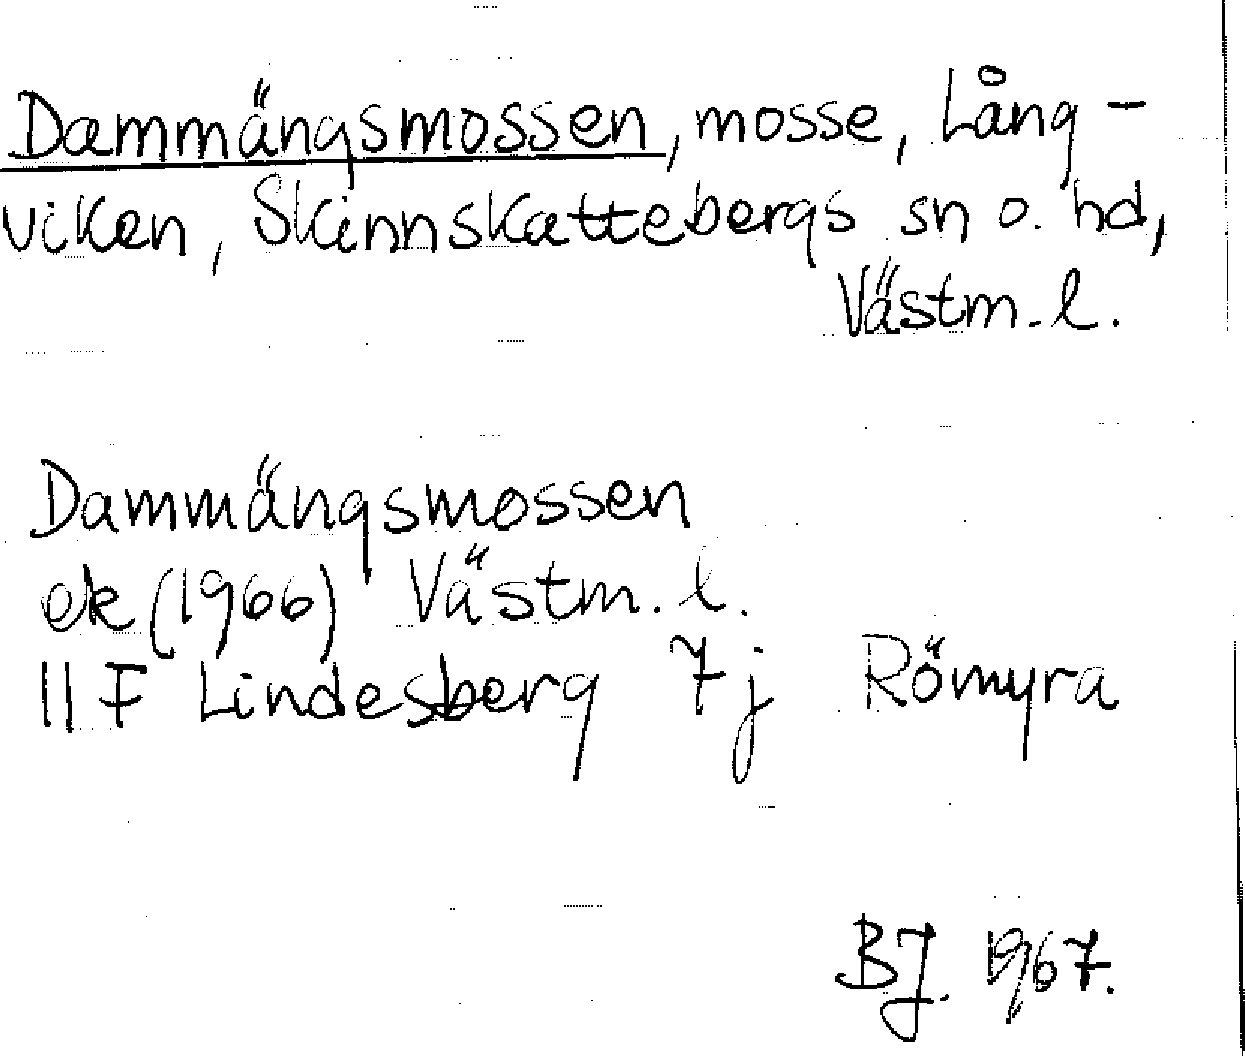 Dammängsmossen, mosse, Lång-
viken, Skinnskattebergs sn o. hd,
Västm. l.
Dammängsmossen
ek (1966) Västm. l.
11 F Lindesberg 7j Römyra
BJ. 1967.